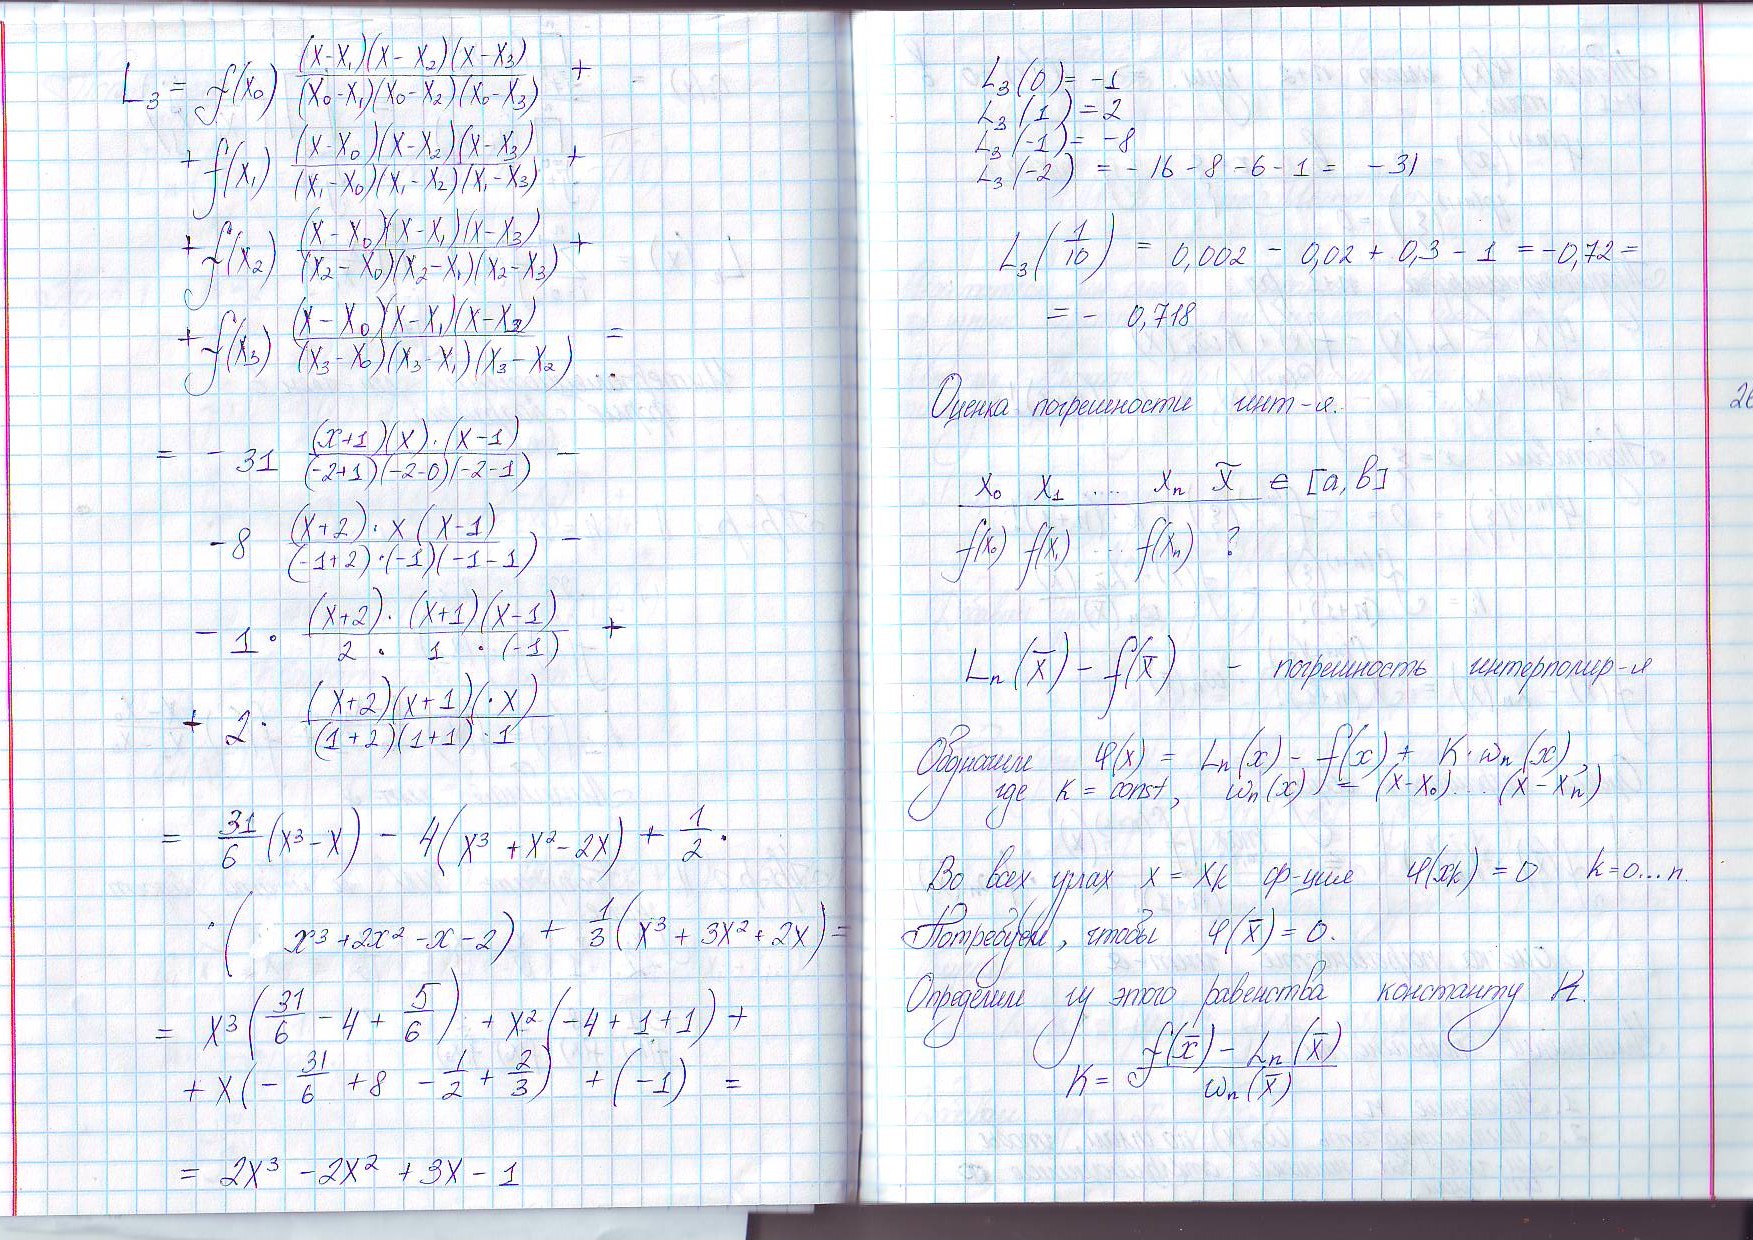 L₃ = f(x₀) (x-x₁)(x-x₂)(x-x₃) / (x₀-x₁)(x₀-x₂)(x₀-x₃) +
+ f(x₁) (x-x₀)(x-x₂)(x-x₃) / (x₁-x₀)(x₁-x₂)(x₁-x₃) +
+ f(x₂) (x-x₀)(x-x₁)(x-x₃) / (x₂-x₀)(x₂-x₁)(x₂-x₃) +
+ f(x₃) (x-x₀)(x-x₁)(x-x₂) / (x₃-x₀)(x₃-x₁)(x₃-x₂) =
= - 31 (x+1)(x)·(x-1) / (-2+1)(-2-0)(-2-1) -
-8 (x+2)·x(x-1) / (-1+2)·(-1)(-1-1) -
- 1 · (x+2)·(x+1)(x-1) / 2 · 1 · (-1) +
+ 2 · (x+2)(x+1)(·x) / (1+2)(1+1)·1
= 31/6 (x³-x) - 4(x³+x²-2x) + 1/2 ·
·( x³+2x²-x-2) + 1/3 (x³+3x²+2x) =
= x³(31/6 - 4 + 5/6) + x²(-4+1+1) +
+ x(- 31/6 + 8 - 1/2 + 2/3) + (-1) =
= 2x³ - 2x² + 3x - 1
L₃(0) = -1
L₃(1) = 2
L₃(-1) = -8
L₃(-2) = -16-8-6-1 = -31
L₃(1/10) = 0,002 - 0,02 + 0,3 - 1 = -0,72 =
= - 0,718
Оценка погрешности инт-я.
26
x₀ x₁ .... xₙ x̄ ∈ [a,b]
f(x₀) f(x₁) ... f(xₙ) ?
Lₙ(x̄) - f(x̄) - погрешность интерполир-я
Обозначим φ(x) = Lₙ(x) - f(x) + K·ωₙ(x),
где K = const, ωₙ(x) = (x-x₀)...(x-xₙ)
Во всех узлах x = xₖ ф-ция φ(xₖ) = 0 k=0...n.
Потребуем, чтобы φ(x̄) = 0.
Определим из этого равенства константу K.
K = f(x̄) - Lₙ(x̄) / ωₙ(x̄)